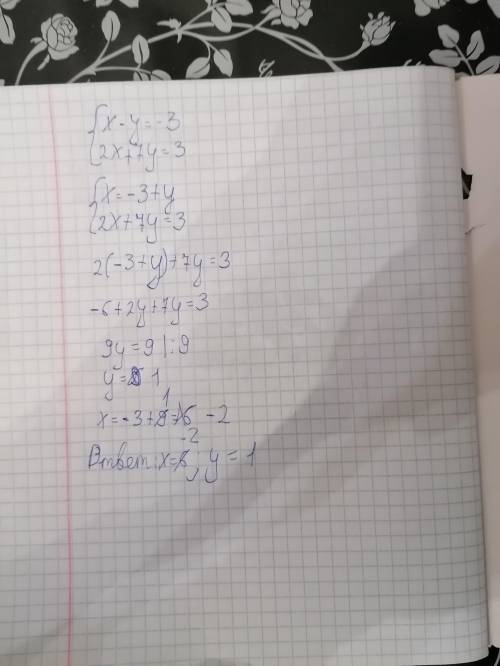 x-y=-3
2x+7y=3
x=-3+y
2x+7y=3
2(-3+y)+7y=3
-6+2y+7y=3
9y=9 |:9
y= 1
x=-3+1= -2
Ответ: x=-2; y=1